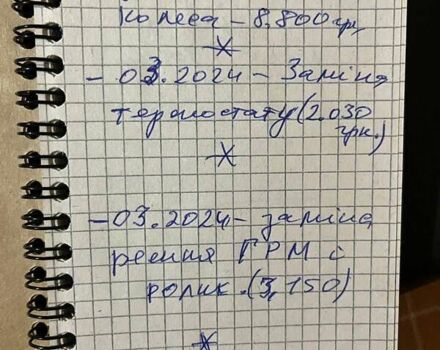 колеса – 8,800 грн,
– 03.2024 – Заміна
термостату (2.030
грн.)
– 03.2024 – заміна
ременя ГРМ і
ролик. (3,150)